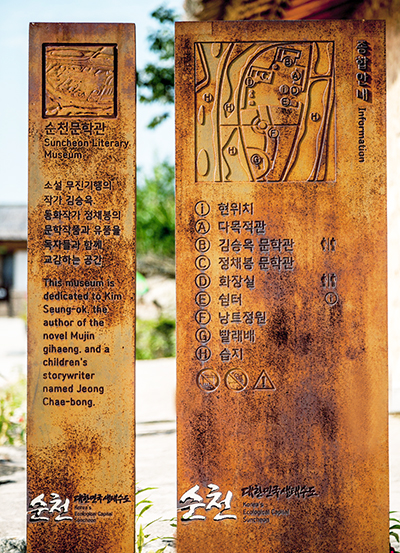 순천문학관
Suncheon Literary
Museum
소설 무진기행의
작가 김승옥,
동화작가 정채봉의
문학작품과 유품을
독자들과 함께
교감하는 공간
This museum is
dedicated to Kim
Seung-ok, the
author of the
novel Mujin
gihaeng, and a
children's
storywriter
named Jeong
Chae-bong.
순천 대한민국 생태수도
Korea's
Ecological Capital
Suncheon
Information
ⓘ 현위치
Ⓐ 다목적관
Ⓑ 김승옥 문학관
Ⓒ 정채봉 문학관
Ⓓ 화장실
Ⓔ 쉼터
Ⓕ 낭트정원
Ⓖ 빨래배
Ⓗ 습지
순천 대한민국 생태수도
Korea's
Ecological Capital
Suncheon